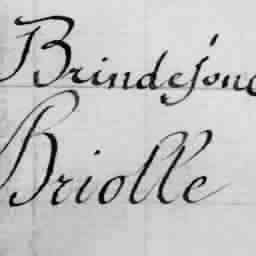 Brindejonc
Briolle